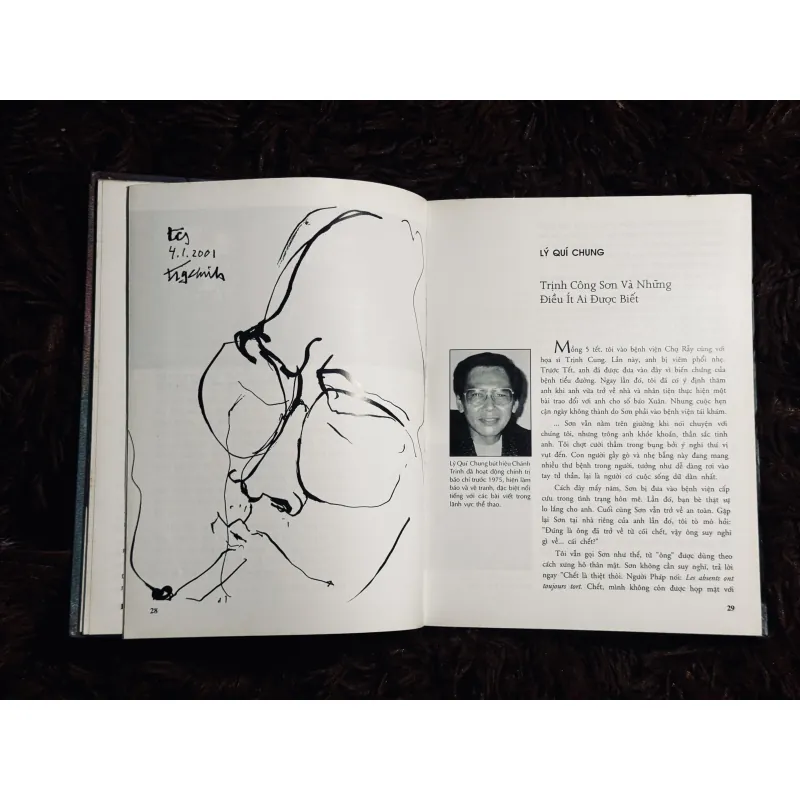 tcs
4.1.2001
28
LÝ QUÍ CHUNG
Trịnh Công Sơn Và Những
Điều Ít Ai Được Biết
Lý Quí Chung bút hiệu Chánh
Trinh đã hoạt động chính trị
báo chí trước 1975, hiện làm
báo và vẽ tranh, đặc biệt nổi
tiếng với các bài viết trong
lãnh vực thể thao.
Mồng 5 tết, tôi vào bệnh viện Chợ Rẫy cùng với
họa sĩ Trịnh Cung. Lần này, anh bị viêm phổi nhẹ.
Trước Tết, anh đã được đưa vào đây vì biến chứng của
bệnh tiểu đường. Ngay lần đó, tôi đã có ý định thăm
anh khi anh vừa trở về nhà và nhân tiện thực hiện một
bài trao đổi với anh cho số báo Xuân. Nhưng cuộc hẹn
cận ngày không thành do Sơn phải vào bệnh viện tái khám.
... Sơn vẫn nằm trên giường khi nói chuyện với
chúng tôi, nhưng trông anh khỏe khoắn, thần sắc tinh
anh. Tôi chợt cười thầm trong bụng bởi ý nghĩ thú vị
vụt đến. Con người gầy gò và nhẹ bẫng này đang mang
nhiều thứ bệnh trong người, tưởng như dễ dàng rơi vào
tay tử thần, lại là người có cuộc sống dữ dằn nhất.
Cách đây mấy năm, Sơn bị đưa vào bệnh viện cấp
cứu trong tình trạng hôn mê. Lần đó, bạn bè thật sự
lo lắng cho anh. Cuối cùng Sơn vẫn trở về an toàn. Gặp
lại Sơn tại nhà riêng của anh lần đó, tôi tò mò hỏi:
"Đúng là ông đã trở về từ cõi chết, vậy ông suy nghĩ
gì về... cái chết?"
Tôi vẫn gọi Sơn như thế, từ "ông" được dùng theo
cách xưng hô thân mật. Sơn không cần suy nghĩ, trả lời
ngay "Chết là thiệt thòi. Người Pháp nói: Les absents ont
toujours tort. Chết, mình không còn được họp mặt với
29